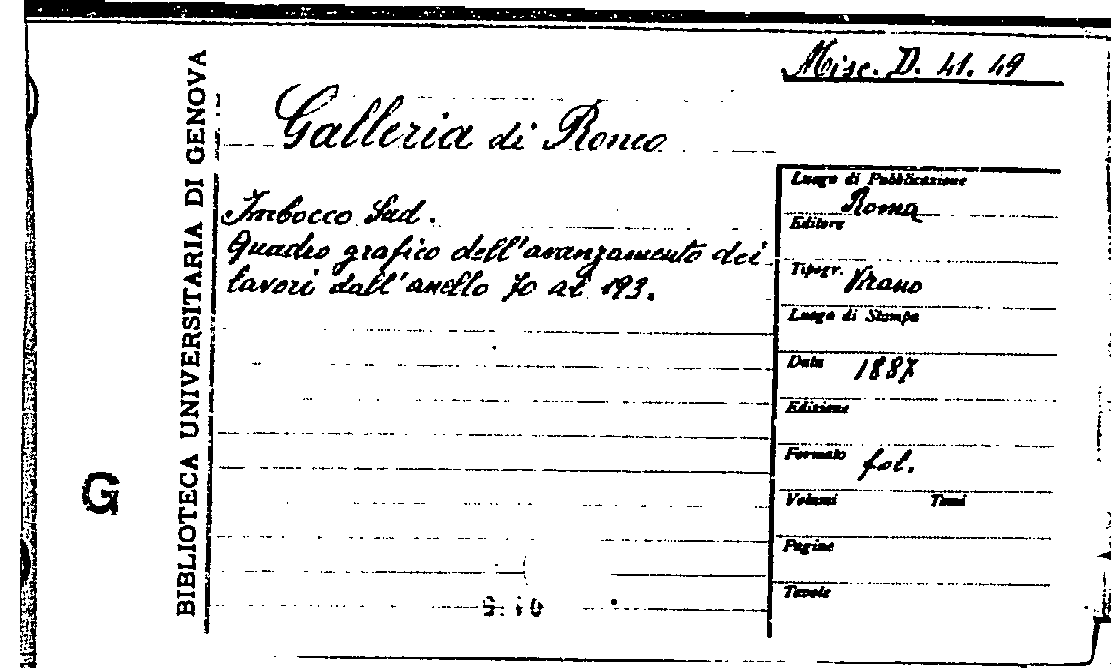 Misc. D. 41. 49
BIBLIOTECA UNIVERSITARIA DI GENOVA
G
Galleria di Ronco
Imbocco Sud.
Quadro grafico dell'avanzamento dei
lavori dall'anello 70 al 193.
Luogo di Pubblicazione
Roma
Editore
Tipogr.
Luogo di Stampa
Data 1887
Edizione
Formato fol.
Volumi Tomi
Pagine
Tavole